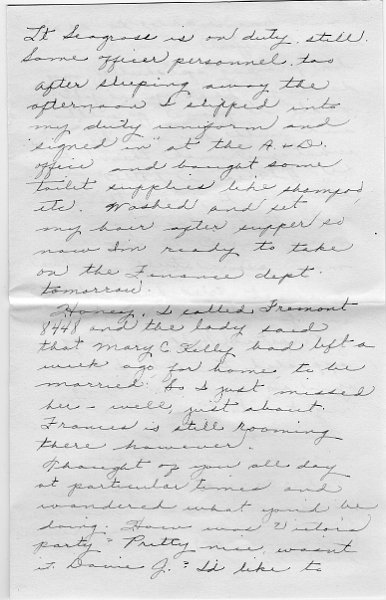 Lt Seagrass is on duty still.
Same officer personnel, too
After sleeping away the
afternoon I slipped into
my duty uniform and
"signed in" at the A. & D.
office and bought some
toilet supplies like shampoo,
etc. Washed and set
my hair after supper so
now I'm ready to take
on the Finance dept.
tomorrow.
Honey, I called Fremont
8448 and the lady said
that Mary C. Kelly had left a
week ago for home to be
married. So I just missed
her - well, just about.
Frances is still rooming
there however.
Thought of you all day
at particular times and
wondered what you'd be
doing. How was Victor's
party? Pretty nice, wasn't
it. J.? I'd like to